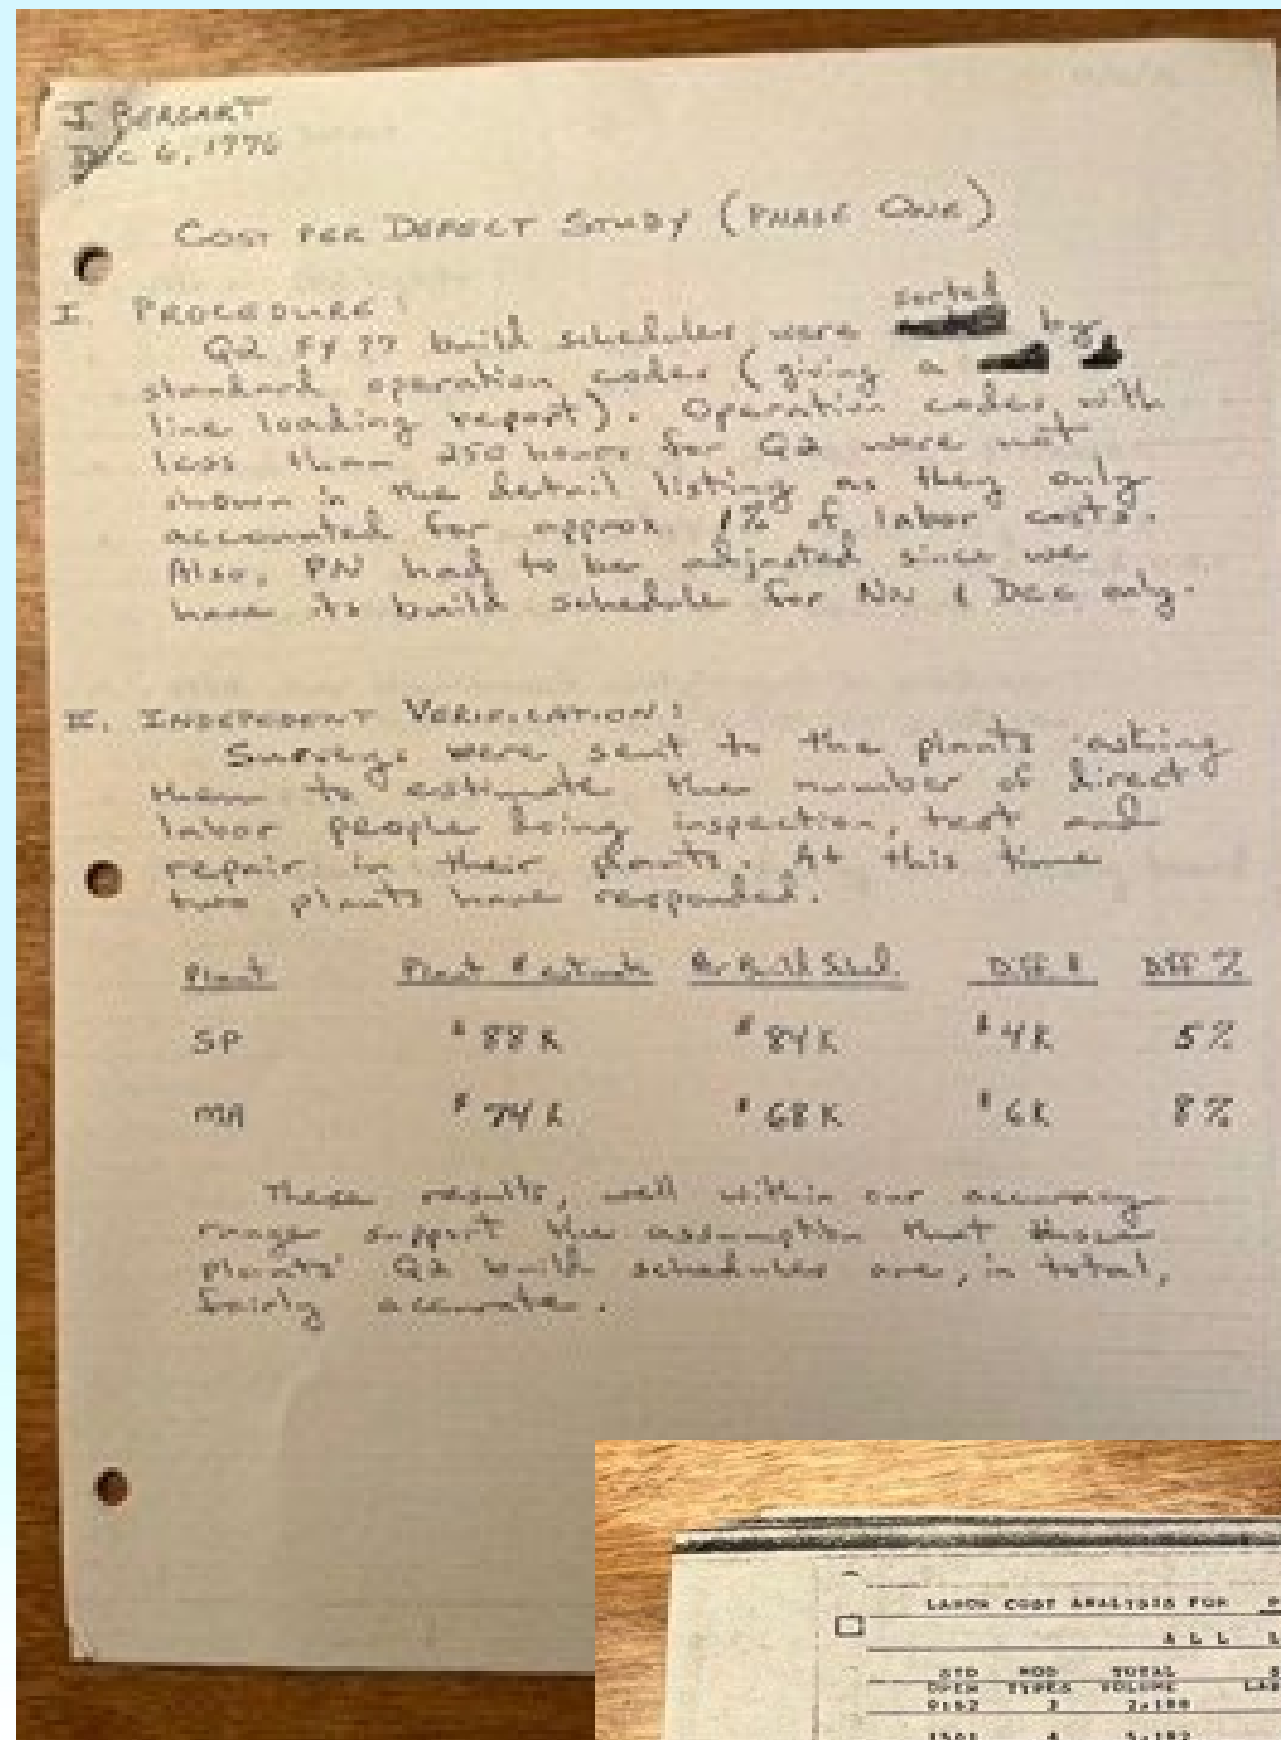 J. BERGART
Dec 6, 1976
COST PER DEFECT STUDY (PHASE ONE)
I. PROCEDURE:
Q2 FY 77 build schedules were sorted by
standard operation codes (giving a
line loading report). Operation codes with
less than 250 hours for Q2 were not
shown in the detail listing as they only
accounted for approx. 1% of labor costs.
Also, PN had to be adjusted since we
have its build schedule for Nov & Dec only.
II. INDEPENDENT VERIFICATION:
Surveys were sent to the plants asking
them to estimate the number of direct
labor people doing inspection, test and
repair in their plants. At this time
two plants have responded.
Plant Plant Estimate Per Build Sched. Diff $ Diff %
SP $88K $84K $4K 5%
MA $74K $68K $6K 8%
These results, well within our accuracy
range support the assumption that those
plants' Q2 build schedules are, in total,
fairly accurate.
LABOR COST ANALYSIS FOR P
A L L L
STD MOD TOTAL S
OPER TYPES VOLUME LAB
3
4